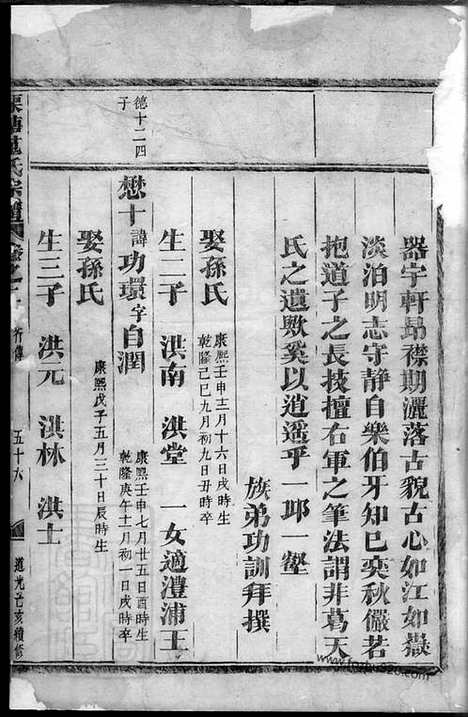 器宇軒昂襟期灑落古貌古心如江如嶽
淡泊明志守静自樂伯牙知已奕秋儼若
抱道子之長技擅右軍之筆法謂非葛天
氏之遺歟奚以逍遥乎一邱一壑
族弟功訓拜撰
娶孫氏
康熙壬申十二月十六日戌時生
乾隆己巳九月初九日丑時卒
生二子 洪南 洪堂 一女適澧浦王
德十二四
子
懋十諱功環字自潤
康熙壬申七月廿五日酉時生
乾隆庚午十一月初一日戌時卒
娶孫氏
康熙戊子五月三十日辰時生
生三子 洪元 洪林 洪士
氏宗譜 卷之 行傳 五十六 道光辛亥續修